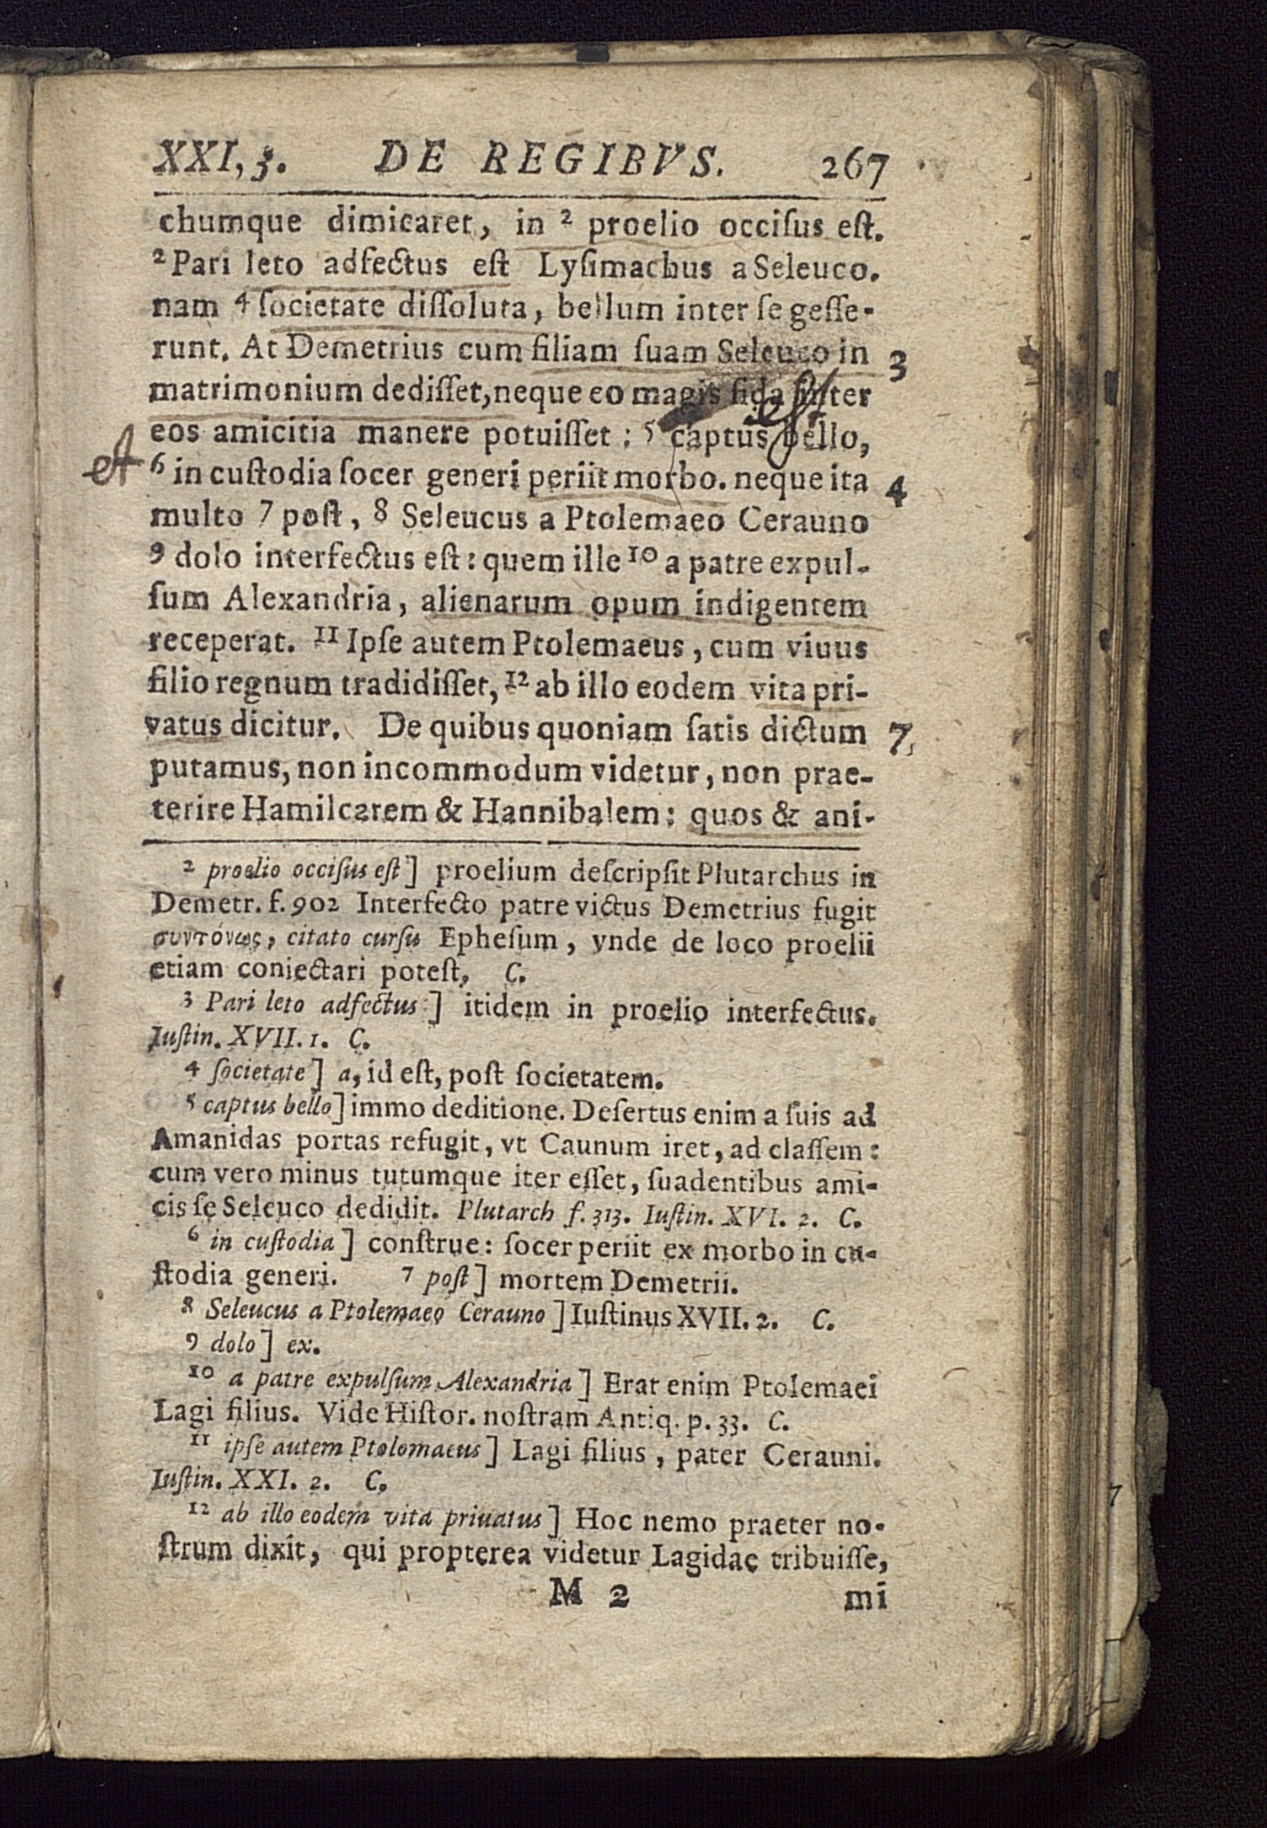 XXI, 3. DE REGIBVS. 267
chumque dimicaret, in ² proelio occiſus eſt.
² Pari leto adfectus eſt Lyſimachus a Seleuco.
nam 4 ſocietate diſſoluta, bellum inter ſe geſſe-
runt. At Demetrius cum filiam ſuam Seleuco in 3
matrimonium dediſſet, neque eo magis fida inter
est
eos amicitia manere potuiſſet: 5 captus bello,
et 6 in cuſtodia ſocer generi periit morbo. neque ita 4
multo 7 poſt, 8 Seleucus a Ptolemaeo Cerauno
9 dolo interfectus eſt: quem ille 10 a patre expul-
ſum Alexandria, alienarum opum indigentem
receperat. 11 Ipſe autem Ptolemaeus, cum viuus
filio regnum tradidiſſet, 12 ab illo eodem vita pri-
vatus dicitur. De quibus quoniam ſatis dictum 7,
putamus, non incommodum videtur, non prae-
terire Hamilcarem & Hannibalem: quos & ani-
² proelio occiſus eſt] proelium deſcripſit Plutarchus in
Demetr. f. 902 Interfecto patre victus Demetrius fugit
συντόνως, citato curſu Epheſum, ynde de loco proelii
etiam coniectari poteſt, C.
3 Pari leto adfectus:] itidem in proelio interfectus.
Iuſtin. XVII. 1. C.
4 ſocietate] a, id eſt, poſt ſocietatem.
5 captus bello] immo deditione. Deſertus enim a ſuis ad
Amanidas portas refugit, vt Caunum iret, ad claſſem:
cum vero minus tutumque iter eſſet, ſuadentibus ami-
cis ſe Seleuco dedidit. Plutarch f. 313. Iuſtin. XVI. 2. C.
6 in cuſtodia] conſtrue: ſocer periit ex morbo in cu-
ſtodia generi. 7 poſt] mortem Demetrii.
8 Seleucus a Ptolemaeo Cerauno] Iuſtinus XVII. 2. C.
9 dolo] ex.
10 a patre expulſum Alexandria] Erat enim Ptolemaei
Lagi filius. Vide Hiſtor. noſtram Antiq. p. 33. C.
11 ipſe autem Ptolomaeus] Lagi filius, pater Cerauni.
Iuſtin. XXI. 2. C.
12 ab illo eodem vita priuatus] Hoc nemo praeter no-
ſtrum dixit, qui propterea videtur Lagidae tribuiſſe,
M 2 mi